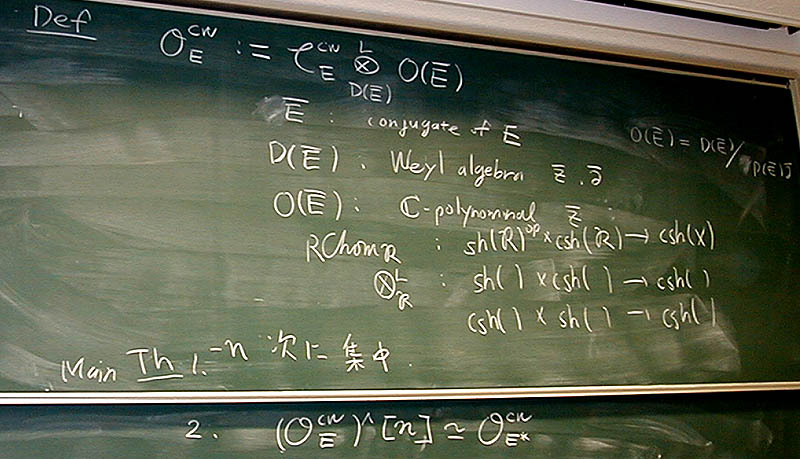 Def
O_E^{cw} := C_E^{cw} ⊗^L_{D(Ē)} O(Ē)
Ē : conjugate of E
O(Ē) = D(Ē)/D(Ē)∂̄
D(Ē) : Weyl algebra z̄, ∂̄
O(Ē) : ℂ-polynominal z̄
RChom_R : sh(R)^{op} × csh(R) → csh(X)
⊗^L_R : sh( ) × csh( ) → csh( )
csh( ) × sh( ) → csh( )
Main Th 1. -n 次に集中.
2. (O_E^{cw})^∧[n] ≃ O_{E*}^{cw}